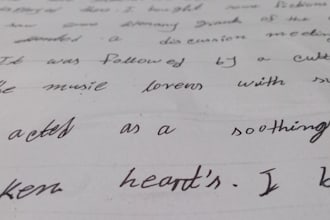 I bought some fictions
of the
a discussion meeting
It was followed by a cult
music lovers with su
acted as a soothing
ken heart's. I b